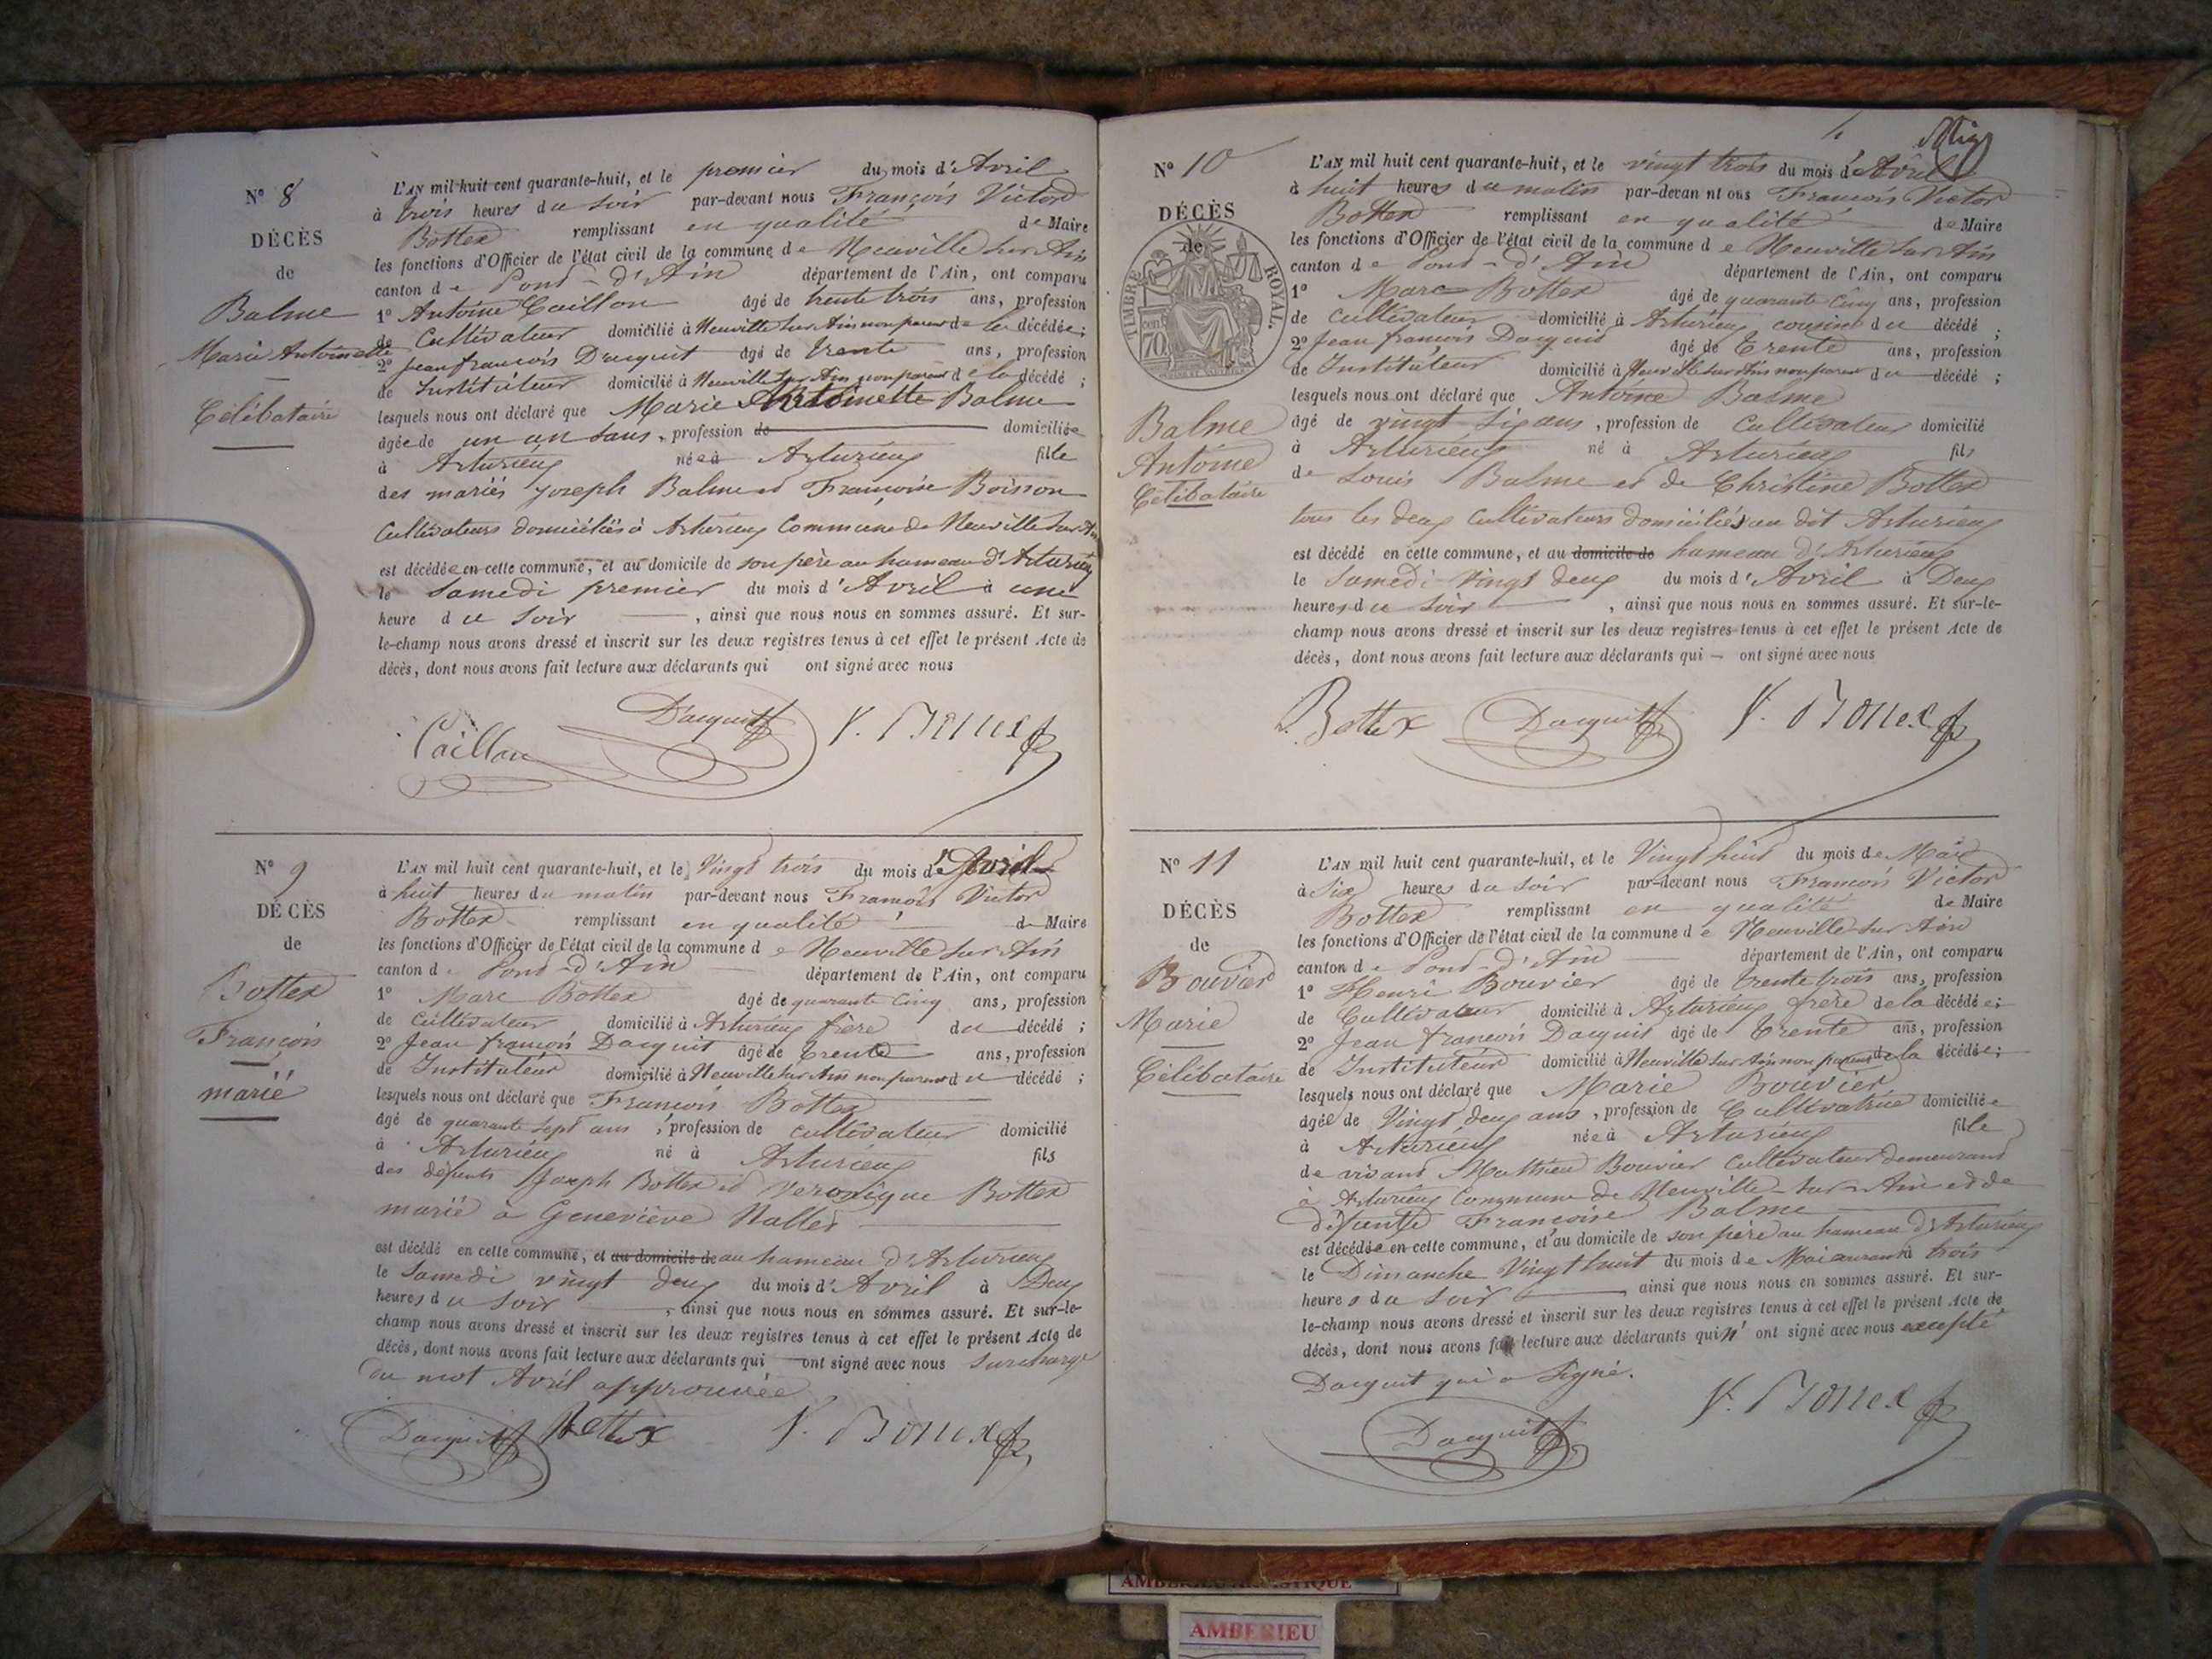 N° 8
DÉCÈS
de
Balme
Marie Antoinette
Célibataire
L'AN mil huit cent quarante-huit, et le premier du mois d'Avril
à trois heures du soir par-devant nous François Victor
Bottex remplissant en qualité de Maire
les fonctions d'Officier de l'état civil de la commune de Neuville sur Ain
canton de Pont-d'Ain département de l'Ain, ont comparu
1° Antoine Caillon âgé de trente trois ans, profession
de Cultivateur domicilié à Neuville sur Ain non parent de la décédée;
2° Jean françois Dacquit âgé de trente ans, profession
de Instituteur domicilié à Neuville sur Ain non parent de la décédé;
lesquels nous ont déclaré que Marie Antoinette Balme
âgée de un an sans, profession de domiciliée
à Arturieux née à Arturieux fille
des mariés Joseph Balme et Françoise Boisson
Cultivateurs domiciliés à Arturieux Commune de Neuville sur Ain
est décédée en cette commune, et au domicile de son père au hameau d'Arturieux
le samedi premier du mois d'Avril à une
heure du soir , ainsi que nous nous en sommes assuré. Et sur-
le-champ nous avons dressé et inscrit sur les deux registres tenus à cet effet le présent Acte de
décès, dont nous avons fait lecture aux déclarants qui ont signé avec nous
Caillon Dacquit V. Bottex
N° 9
DÉCÈS
de
Bottex
François
marié
L'AN mil huit cent quarante-huit, et le Vingt trois du mois d'Avril
à huit heures du matin par-devant nous François Victor
Bottex remplissant en qualité de Maire
les fonctions d'Officier de l'état civil de la commune de Neuville sur Ain
canton de Pont-d'Ain département de l'Ain, ont comparu
1° Marc Bottex âgé de quarante cinq ans, profession
de Cultivateur domicilié à Arturieux frère du décédé;
2° Jean françois Dacquit âgé de trente ans, profession
de Instituteur domicilié à Neuville sur Ain non parent du décédé;
lesquels nous ont déclaré que François Bottex
âgé de quarante sept ans, profession de cultivateur domicilié
à Arturieux né à Arturieux fils
des défunts Joseph Bottex et Veronique Bottex
marié à Geneviève Nallet
est décédé en cette commune, et au domicile de au hameau d'Arturieux
le Samedi vingt deux du mois d'Avril à Deux
heures du soir , ainsi que nous nous en sommes assuré. Et sur-le-
champ nous avons dressé et inscrit sur les deux registres tenus à cet effet le présent Acte de
décès, dont nous avons fait lecture aux déclarants qui ont signé avec nous surcharge
du mot Avril approuvée
Dacquit Bottex V. Bottex
N° 10
DÉCÈS
de
TIMBRE ROYAL.
70
Balme
Antoine
Célibataire
L'AN mil huit cent quarante-huit, et le vingt trois du mois d'Avril
à huit heures du matin par-devan nt ous François Victor
Bottex remplissant en qualité de Maire
les fonctions d'Officier de l'état civil de la commune de Neuville sur Ain
canton de Pont-d'Ain département de l'Ain, ont comparu
1° Marc Bottex âgé de quarante Cinq ans, profession
de Cultivateur domicilié à Arturieux cousin du décédé;
2° Jean françois Dacquit âgé de Trente ans, profession
de Instituteur domicilié à Neuville sur Ain non parent du décédé;
lesquels nous ont déclaré que Antoine Balme
âgé de vingt six ans, profession de Cultivateur domicilié
à Arturieux né à Arturieux fils
de Louis Balme et de Christine Bottex
tous les deux Cultivateurs domiciliés au dit Arturieux
est décédé en cette commune, et au domicile de hameau d'Arturieux
le Samedi Vingt deux du mois d'Avril à Deux
heures du soir , ainsi que nous nous en sommes assuré. Et sur-le-
champ nous avons dressé et inscrit sur les deux registres tenus à cet effet le présent Acte de
décès, dont nous avons fait lecture aux déclarants qui — ont signé avec nous
Bottex Dacquit V. Bottex
N° 11
DÉCÈS
de
Bouvier
Marie
Célibataire
L'AN mil huit cent quarante-huit, et le Vingt huit du mois de Mai
à Six heures du soir par-devant nous François Victor
Bottex remplissant en qualité de Maire
les fonctions d'Officier de l'état civil de la commune de Neuville sur Ain
canton de Pont-d'Ain département de l'Ain, ont comparu
1° Henri Bouvier âgé de trente trois ans, profession
de Cultivateur domicilié à Arturieux frère de la décédée;
2° Jean françois Dacquit âgé de Trente ans, profession
de Instituteur domicilié à Neuville sur Ain non parent de la décédée;
lesquels nous ont déclaré que Marie Bouvier
âgée de Vingt deux ans, profession de Cultivatrice domiciliée
à Arturieux née à Arturieux fille
de vivant Mathieu Bouvier Cultivateur demeurant
à Arturieux Commune de Neuville-sur-Ain et de
défunte Françoise Balme
est décédée en cette commune, et au domicile de son père au hameau d'Arturieux
le Dimanche Vingt huit du mois de Mai courant à trois
heures du soir ainsi que nous nous en sommes assuré. Et sur-
le-champ nous avons dressé et inscrit sur les deux registres tenus à cet effet le présent Acte de
décès, dont nous avons fait lecture aux déclarants qui n'ont signé avec nous excepté
Dacquit qui a Signé.
Dacquit V. Bottex
AMBERIEU